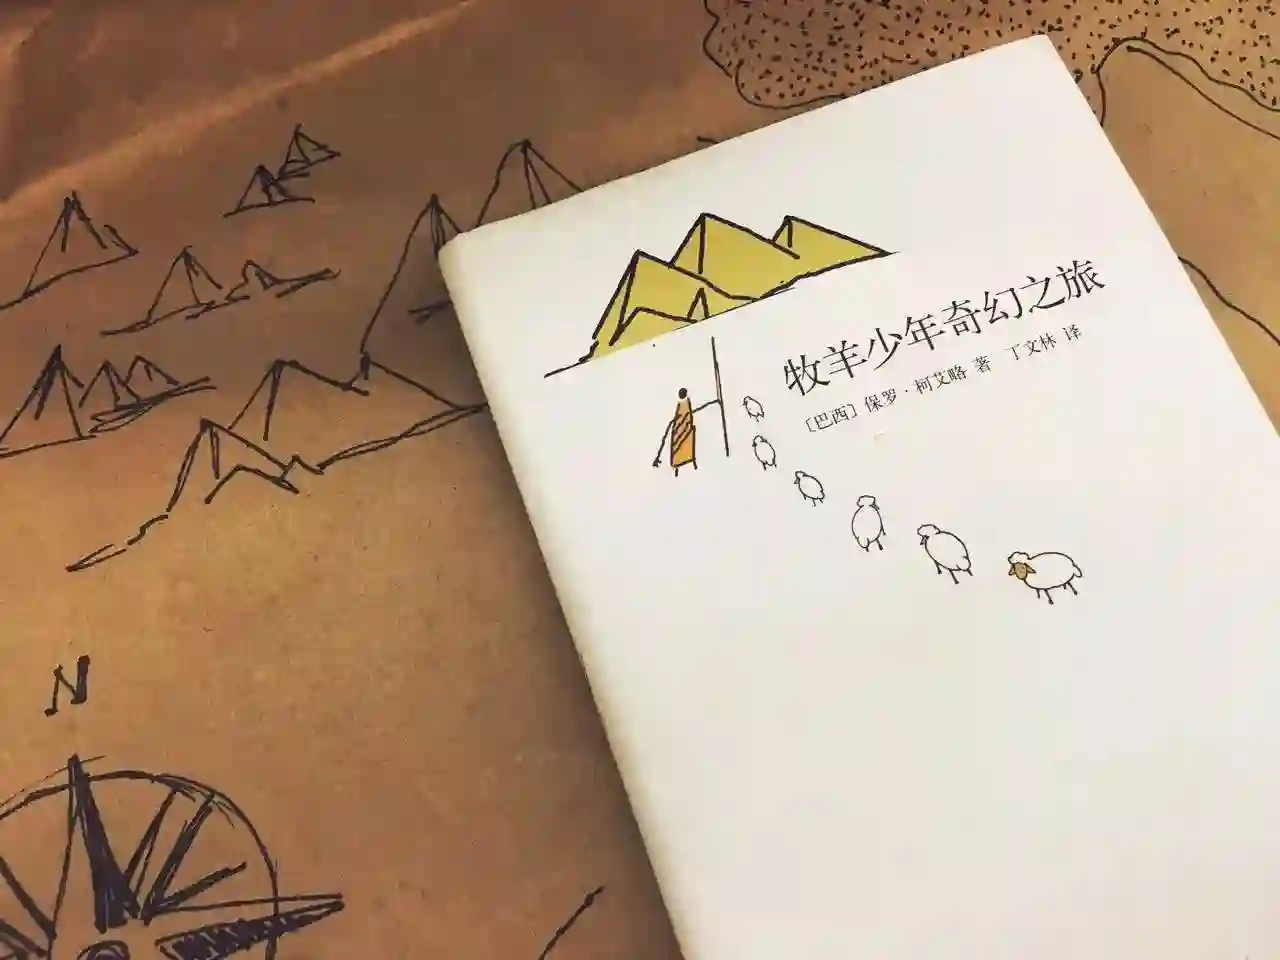 牧羊少年奇幻之旅
[巴西] 保罗·柯艾略 著 丁文林 译
N